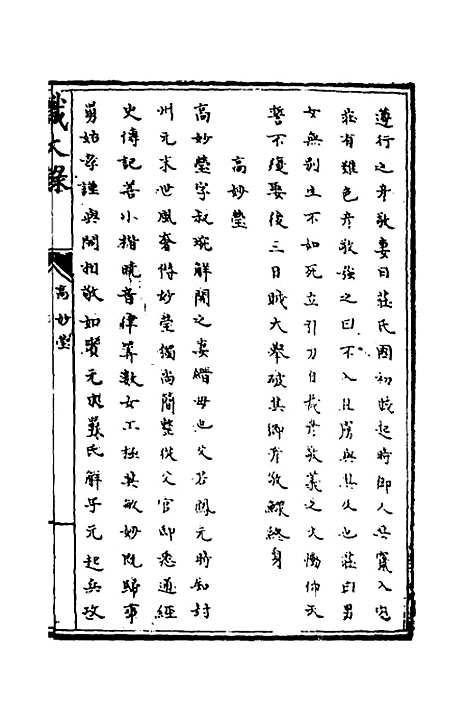 遵行之彥敬妻曰莊氏因初賊起時鄉人共竄入内
莊有難色彥敬強之曰不入且虜與其久也莊曰男
女無别生不如死立引刀自裁彥敬義之大慟仰天
誓不復娶後三日賊大舉破其鄉彥敬鰥終身
高妙瑩
高妙瑩字叔琬解開之妻縉母也父若鳳元時知封
州元末世風奢侈妙瑩獨尚簡整從父官邸悉通經
史傳記善小楷曉音律筭數女工極其敏妙既歸事
舅姑孝謹與開相敬如賓元 氏解子元起兵攻
識大錄
高妙瑩